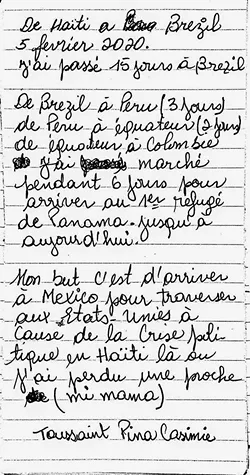 De Haïti a Brezil
5 fevrier 2020.
J'ai passé 15 jours à Brezil
De Brezil à Peru (3 jours)
de Peru à équateur (2 jours)
de équateur à Colombie
J'ai marché
pendant 6 jours pour
arriver au 1er refugé
de Panama. jusqu'à
aujourd'hui.
Mon but c'est d'arriver
à Mexico pour traverser
aux Etats Uniés à
Cause de la Crise pli-
tique en Haïti là ou
J'ai perdu une proche
(mi mama)
Toussaint Pina Casimie